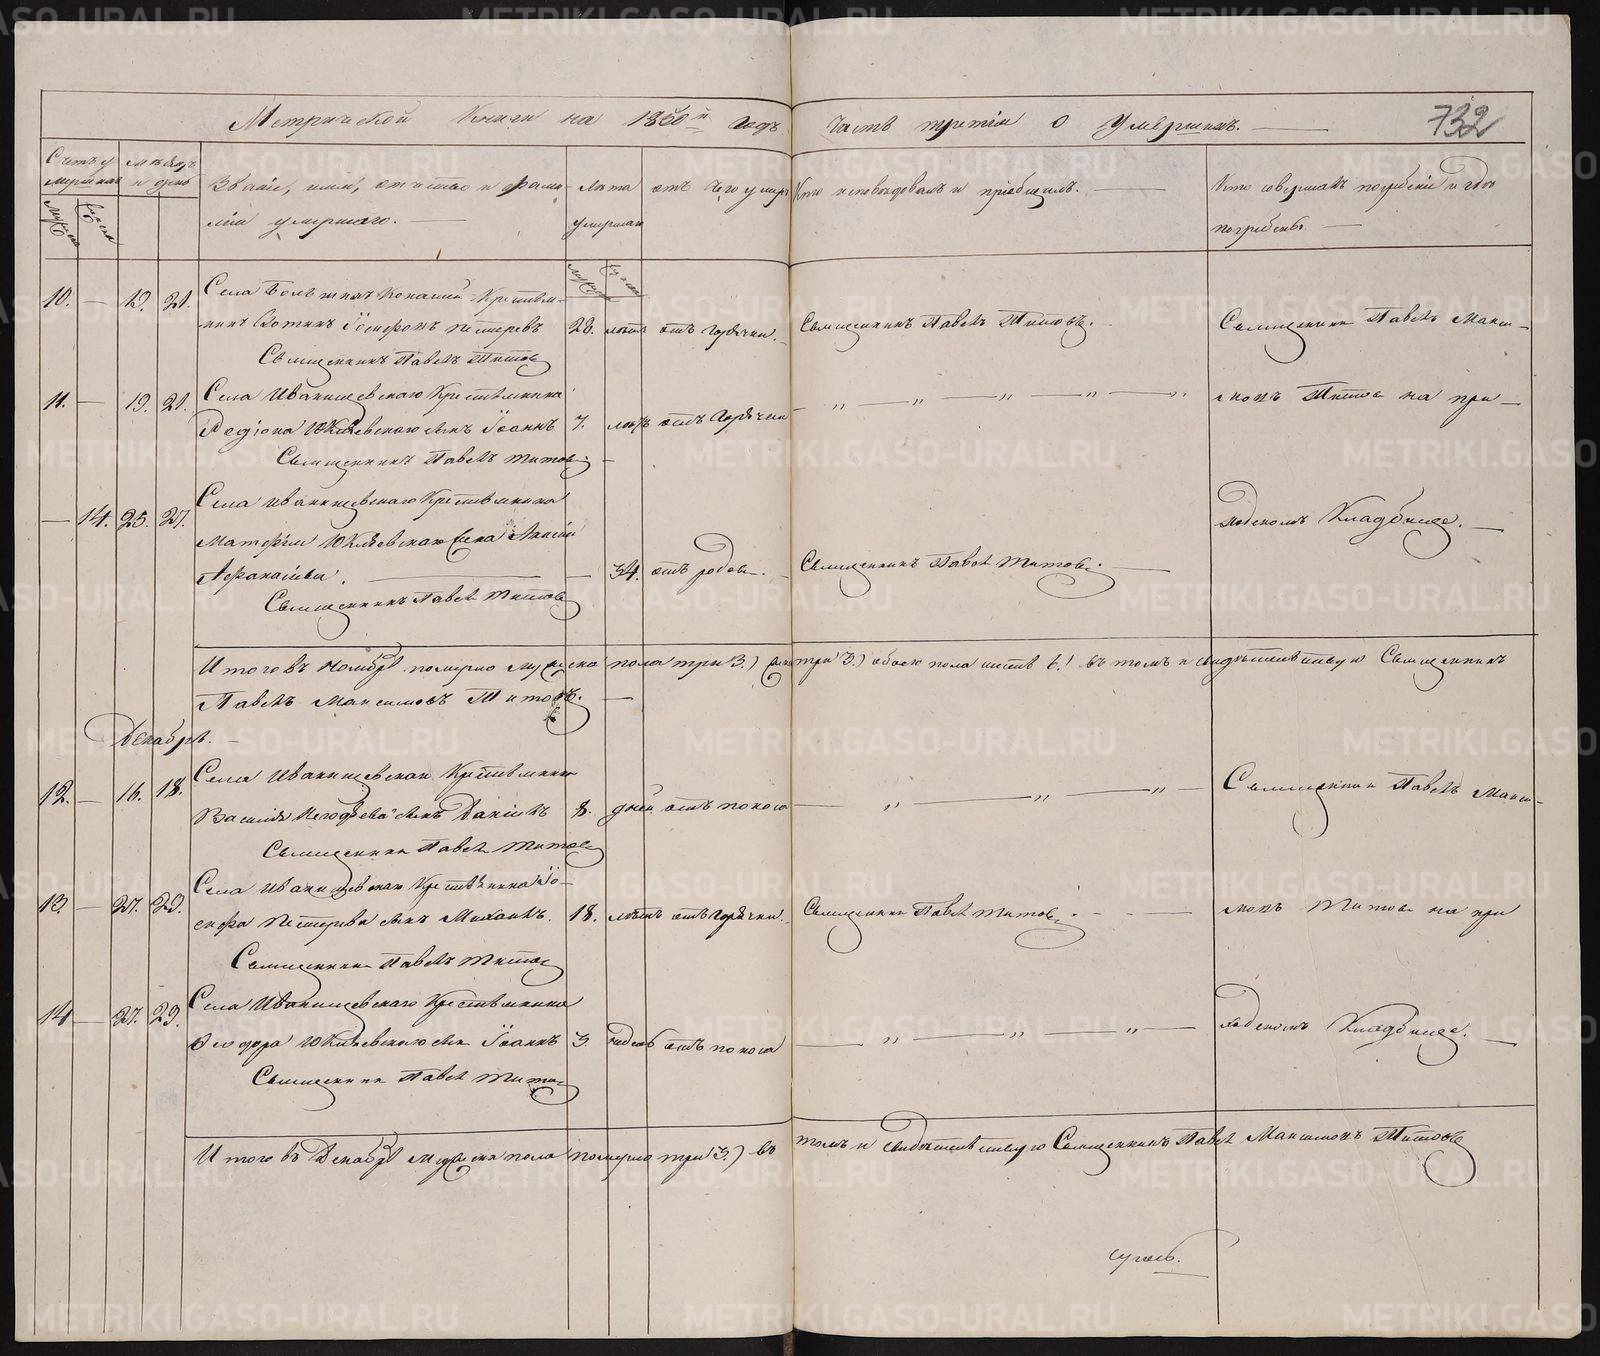 Метрической Книги на 1850й годъ часть третія о умершихъ.
732
Счетъ умершихъ
Мѣсяцъ и день
Званіе, имя, отчество и фамилія умершаго.
Лѣта умершаго
отъ чего умеръ
Кто исповѣдовалъ и пріобщилъ.
Кто совершалъ погребеніе и гдѣ погребены
10. — 19. 21. Села
28. лѣтъ отъ горячки.
Священникъ Павелъ Титовъ.
Священникъ Павелъ Макси-
Священникъ Павелъ Титовъ
11. — 19. 21. Села Иванищевскаго Крестьянина
сынъ Іоаннъ 7. лѣтъ отъ горячки
мовъ Титовъ на при-
Священникъ Павелъ Титовъ
— 14. 25. 27. Села Иванищевскаго Крестьянина
жена
Афанасьева. — 34. отъ родовъ.
Священникъ Павелъ Титовъ.
ходскомъ Кладбище.
Священникъ Павелъ Титовъ
Итого въ Ноябрѣ померло мужеска пола три 3.) женска три 3.) обоего пола шесть 6.) въ томъ и свидѣтельствую Священникъ
Павелъ Максимовъ Титовъ.
Декабрь.
12. — 16. 18. Села Иванищевскаго Крестьянина
Василія сынъ Даніилъ 8. дней отъ поноса
Священникъ Павелъ Макси-
Священникъ Павелъ Титовъ
13. — 27. 29. Села Иванищевскаго Крестьянина Іо-
сифа Пестерева сынъ Михаилъ. 18. лѣтъ отъ горячки.
Священникъ Павелъ Титовъ.
мовъ Титовъ на при
Священникъ Павелъ Титовъ
14 — 27. 29. Села Иванищевскаго Крестьянина
Ѳеодора сынъ Іоаннъ 3. недель отъ поноса
ходскомъ Кладбище.
Священникъ Павелъ Титовъ
Итого въ Декабрѣ мужеска пола померло три 3.) въ томъ и свидѣтельствую Священникъ Павелъ Максимовъ Титовъ
METRIKI.GASO-URAL.RU